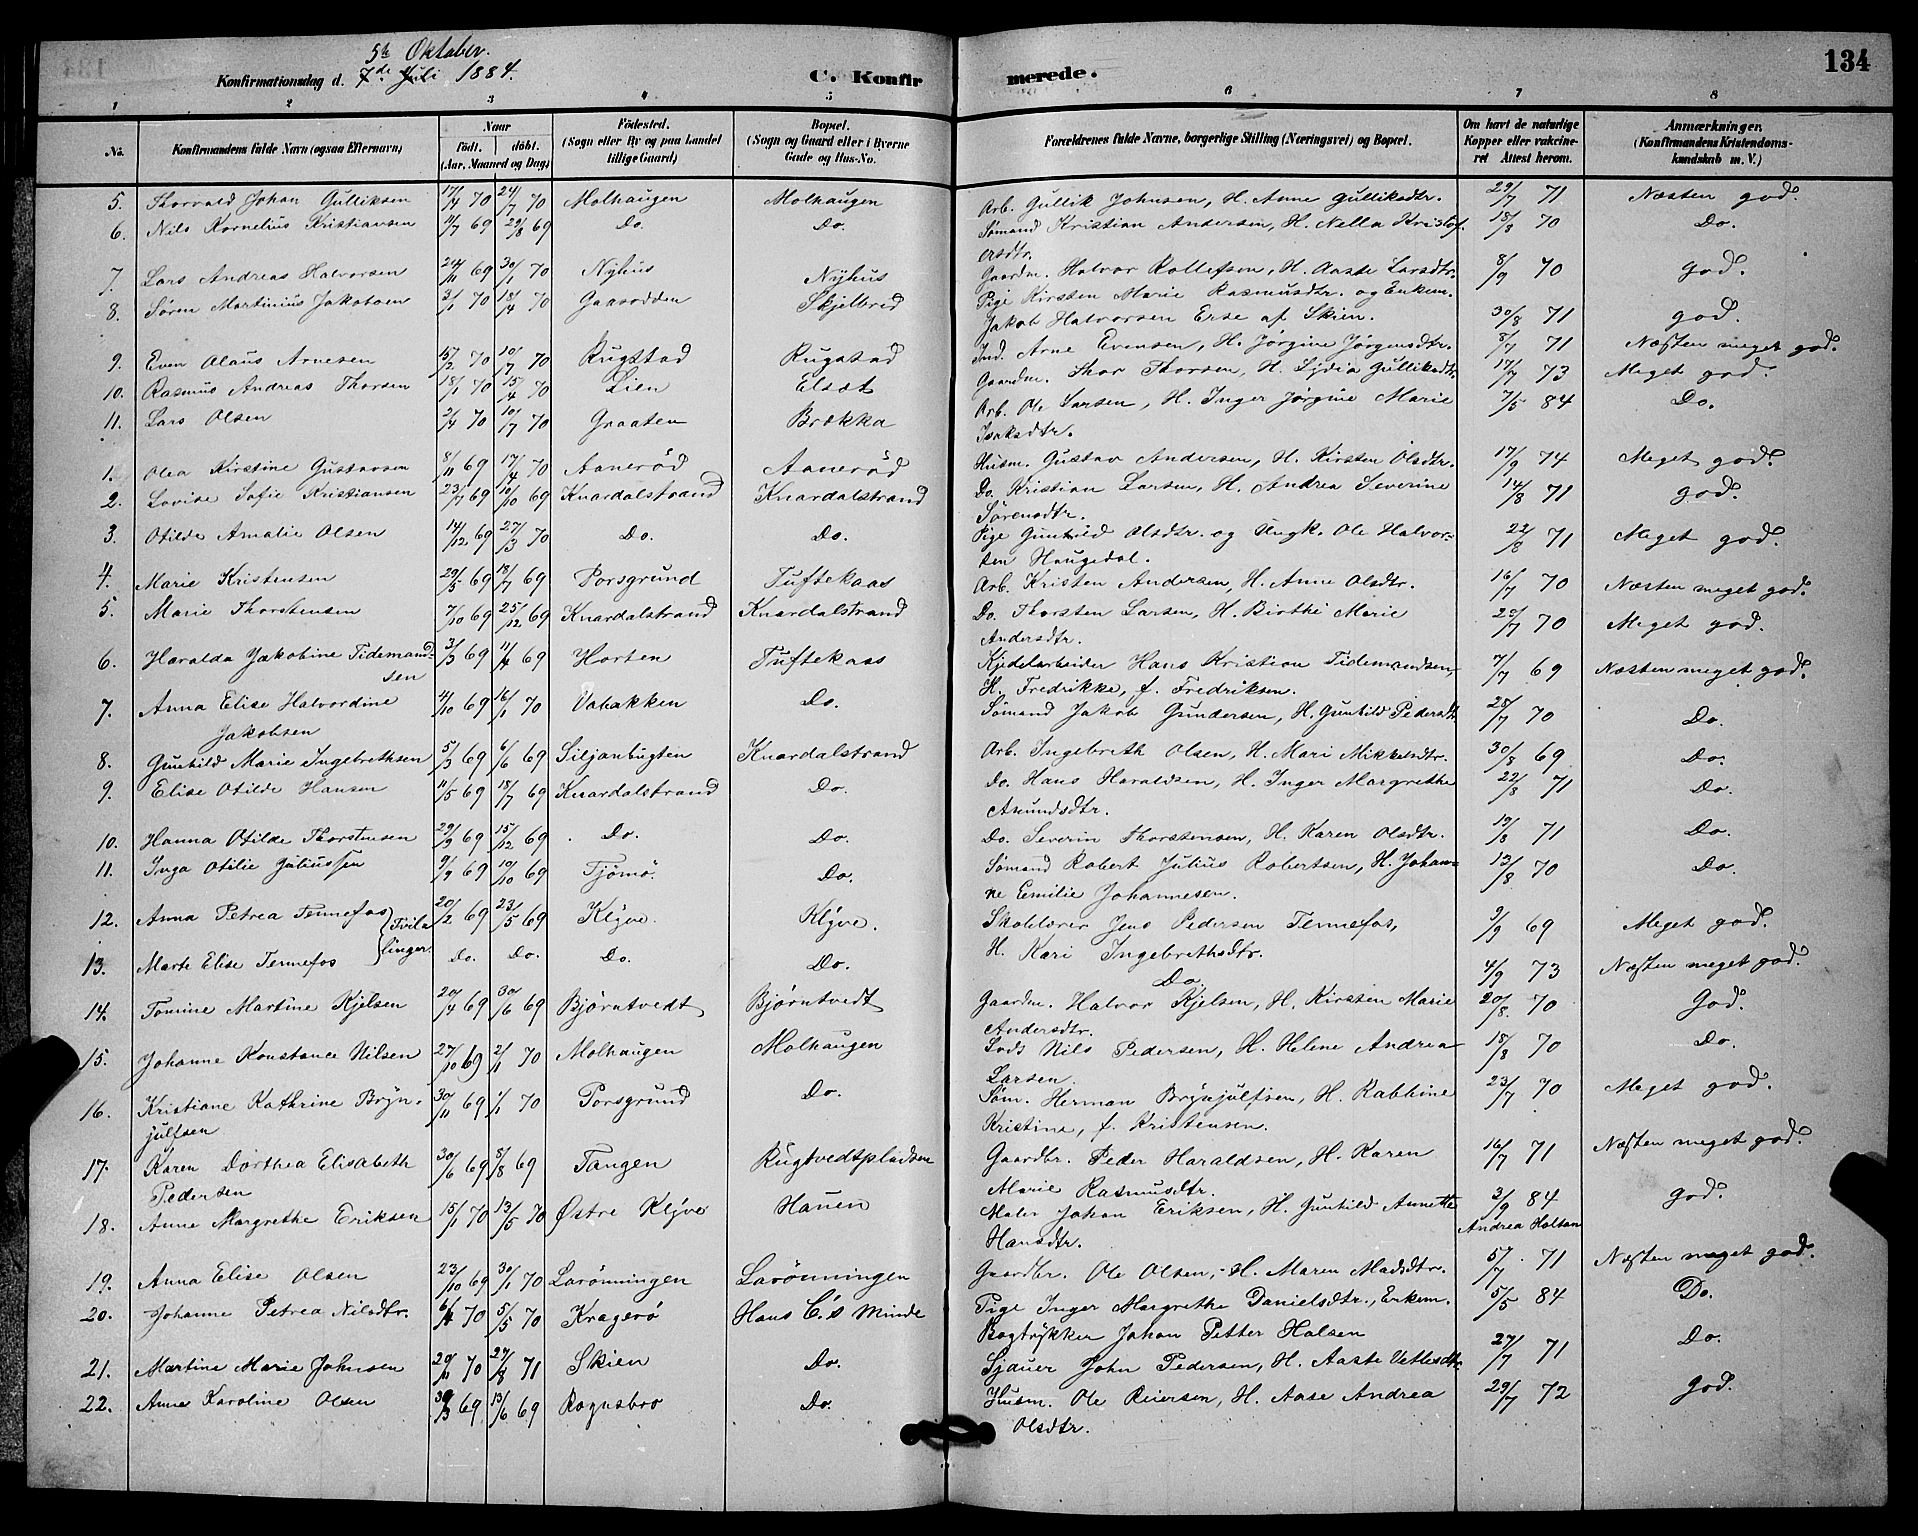 5te Oktober.
Konfirmationsdag d. 7de Juli 1884.
C. Konfir
merede.
134
1 2 3 4 5 6 7 8
No. Konfirmandens fulde Navn (ogsaa Efternavn)
Naar
født. døbt.
(Aar, Maaned og Dag)
Fødested.
(Sogn eller By og paa Landet
tillige Gaard)
Bopæl.
(Sogn og Gaard eller i Byerne
Gade og Hus-No.
Forældrenes fulde Navne, borgerlige Stilling (Næringsvei) og Bopæl.
Om havt de naturlige
Kopper eller vakcine-
ret Attest herom.
Anmærkninger.
(Konfirmandens Kristendoms-
kundskab m. V.)
5. Thorvald Johan Gulliksen 17/4 70 24/7 70 Molhaugen Molhaugen Arb. Gullik Johnsen, H. Anne Gulliksdtr. 29/7 71 Næsten god.
6. Nils Kornelius Kristiansen 11/7 69 29/8 69 Do. Do. Sømand Kristian Andersen, H. Nella Kristof- 18/8 70 Do.
ersdtr.
7. Lars Andreas Halvorsen 24/11 69 30/1 70 Nyhus Nyhus Gaardm. Halvor Rollefsen, H. Aaste Larsdtr. 8/9 70 god.
8. Søren Martinius Jakobsen 3/1 70 18/4 70 Gaasodden Skjelbred Pige Kirsten Marie Rasmusdtr. og Enkem.
Jakob Halvorsen Erse af Skien. 30/8 71 god.
9. Even Olaus Arnesen 15/2 70 10/7 70 Rugstad Rugstad Ind. Arne Evensen, H. Jørgine Jørgensdtr. 8/7 71 Næsten meget god.
10. Rasmus Andreas Thorsen 18/1 70 15/4 70 Lien Elsæt Gaardm. Thor Thorsen, H. Lydia Gulliksdtr. 17/7 73 Meget god.
11. Lars Olsen 2/4 70 10/7 70 Graaten Brækka Arb. Ole Larsen, H. Inger Jørgine Marie 7/5 84 Do.
Isaksdtr.
1. Olea Kirstine Gustavsen 8/11 69 17/4 70 Aanerød Aanerød Husm. Gustav Andersen, H. Kirsten Olsdtr. 17/9 74 Meget god.
2. Lovise Sofie Kristiansen 23/7 69 10/10 69 Knardalstrand Knardalstrand Do. Kristian Larsen, H. Andrea Severine 14/8 71 god.
Sørensdtr.
3. Otilde Amalie Olsen 14/12 69 27/3 70 Do. Do. Pige Gunhild Olsdtr. og Ungk. Ole Halvor- 22/8 71 Meget god.
sen Haugedal.
4. Marie Kristensen 29/5 69 18/7 69 Porsgrund Tuftekaas Arb. Kristen Andersen, H. Anne Olsdtr. 16/7 70 Næsten meget god.
5. Marie Thorstensen 7/10 69 25/12 69 Knardalstrand Knardalstrand Do. Thorsten Larsen, H. Birthe Marie 22/7 70 Meget god.
Andersdtr.
6. Haralda Jakobine Tidemand- 3/3 69 11/4 69 Horten Tuftekaas Kjedelarbeider Hans Kristian Tidemandsen, 7/7 69 Næsten meget god.
sen H. Fredrikke, f. Fredriksen.
7. Anna Elise Halvordine 4/10 69 16/1 70 Vabakken Do. Sømand Jakob Gundersen, H. Gunhild Pedersdt 25/7 70 Do.
Jakobsen
8. Gunhild Marie Ingebrethsen 5/3 69 6/6 69 Siljanbugten Knardalstrand Arb. Ingebreth Olsen, H. Mari Mikkelsdtr. 30/8 69 Do.
9. Elise Otilde Hansen 11/5 69 18/7 69 Knardalstrand Do. Do. Hans Haraldsen, H. Inger Margrethe 22/8 71 Do.
Amundsdtr.
10. Hanna Otilde Thorstensen 29/9 69 15/12 69 Do. Do. Do. Severin Thorstensen, H. Karen Olsdtr. 19/8 71 Do.
11. Inga Otilie Juliussen 9/7 69 10/10 69 Tjømø. Do. Sømand Robert Julius Robertsen, H. Johan- 13/8 70 Do.
ne Emilie Johannesen.
12. Anna Petrea Tennefos 20/2 69 23/5 69 Klyve. Klyve. Skolelærer Jens Pedersen Tennefos, 9/9 69 Meget god.
Tvil-
linger. H. Kari Ingebrethsdtr.
13. Marte Elise Tennefos Do. Do. Do. Do. Do. 4/9 73 Næsten meget god.
14. Tomine Martine Kjelsen 20/4 69 30/6 69 Bjørntvedt Bjørntvedt Gaardm. Halvor Kjelsen, H. Kirsten Marie 20/8 70 God.
Andersdtr.
15. Johanne Konstance Nilsen 27/10 69 2/1 70 Molhaugen Molhaugen Lods Nils Pedersen, H. Helene Andrea 18/8 70 Do.
Larsen.
16. Kristiane Kathrine Bryn- 30/11 69 1/1 70 Porsgrund Do. Søm. Herman Brynjulfsen, H. Kathine 23/7 70 Meget god.
julfsen Kristine, f. Kristensen.
17. Karen Dorthea Elisabeth 30/6 69 8/8 69 Tangen Rugtvedtpladsen Gaardbr. Peder Haraldsen, H. Karen 16/7 71 Næsten meget god.
Pedersen Marie Rasmusdtr.
18. Anne Margrethe Eriksen 15/1 70 13/5 70 Østre Klyve Hauen Maler Johan Eriksen, H. Gunhild Annette 3/9 84 god.
Hansdtr. Andrea Holtan
19. Anna Elise Olsen 23/10 69 30/1 70 Lavønningen Lavønningen Gaardbr. Ole Olsen, H. Maren Madsdtr. 5/7 71 Næsten meget god.
20. Johanne Petrea Nilsdtr. 6/4 70 5/5 70 Kragerø Hans C.s Minde Pige Inger Margrethe Danielsdtr., Enkem. 5/5 84 Do.
Bogtrykker Johan Petter Halsen
21. Martine Marie Johnsen 70 27/8 71 Skien Do. Sjauer John Pedersen, H. Aaste Vetlesdtr. 27/7 71 Do.
22. Anne Karoline Olsen 69 13/6 69 Rognsbro Do. Husm. Ole Reiersen, H. Aase Andrea 29/7 72 god.
Olsdtr.